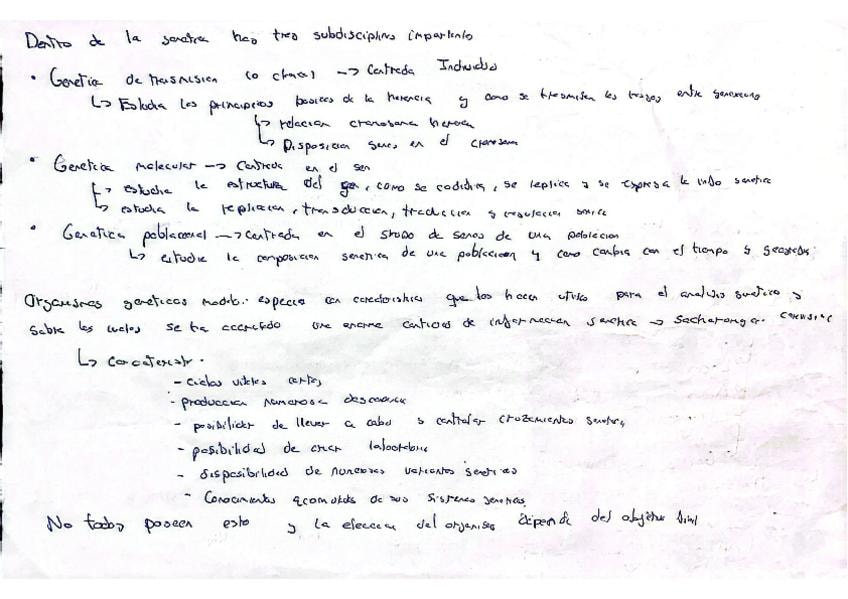 Dentro de la genetica hay tres subdisciplinas importante
• Genetica de trasmision (o clasica) -> Centrada Individuo
↳ Estudia los principios basicos de la herencia y como se trasmiten los rasgos entre generacions
↳ relacion cromosoma herencia
↳ Disposicion genes en el cromosoma
• Genetica molecular -> Centrada en el gen
↳ estudia la estructura del gen, como se codifica, se replica y se expresa la info genetica
↳ estudia la replicacion, transduccion, traduccion y regulacion genica
• Genetica poblacional -> Centrada en el grupo de genes de una poblacion
↳ estudia la composicion genetica de una poblacion y como cambia con el tiempo y geografia
Organismos geneticos modelo: especie con caracteristicas que los hacen utiles para el analisis genetico y
sobre los cuales se ha acumulado una enorme cantidad de informacion genetica ->
↳ Caracterist.
- ciclos vitales cortos
- produccion numerosa descendencia
- posibilidad de llevar a cabo y controlar cruzamientos geneticos
- posibilidad de criar laboratorio
- disposibilidad de numerosas variantes geneticas
- Conocimientos acomulados de sus sistemas geneticos
No todos poseen esto y la eleccion del organismo depende del objetivo final